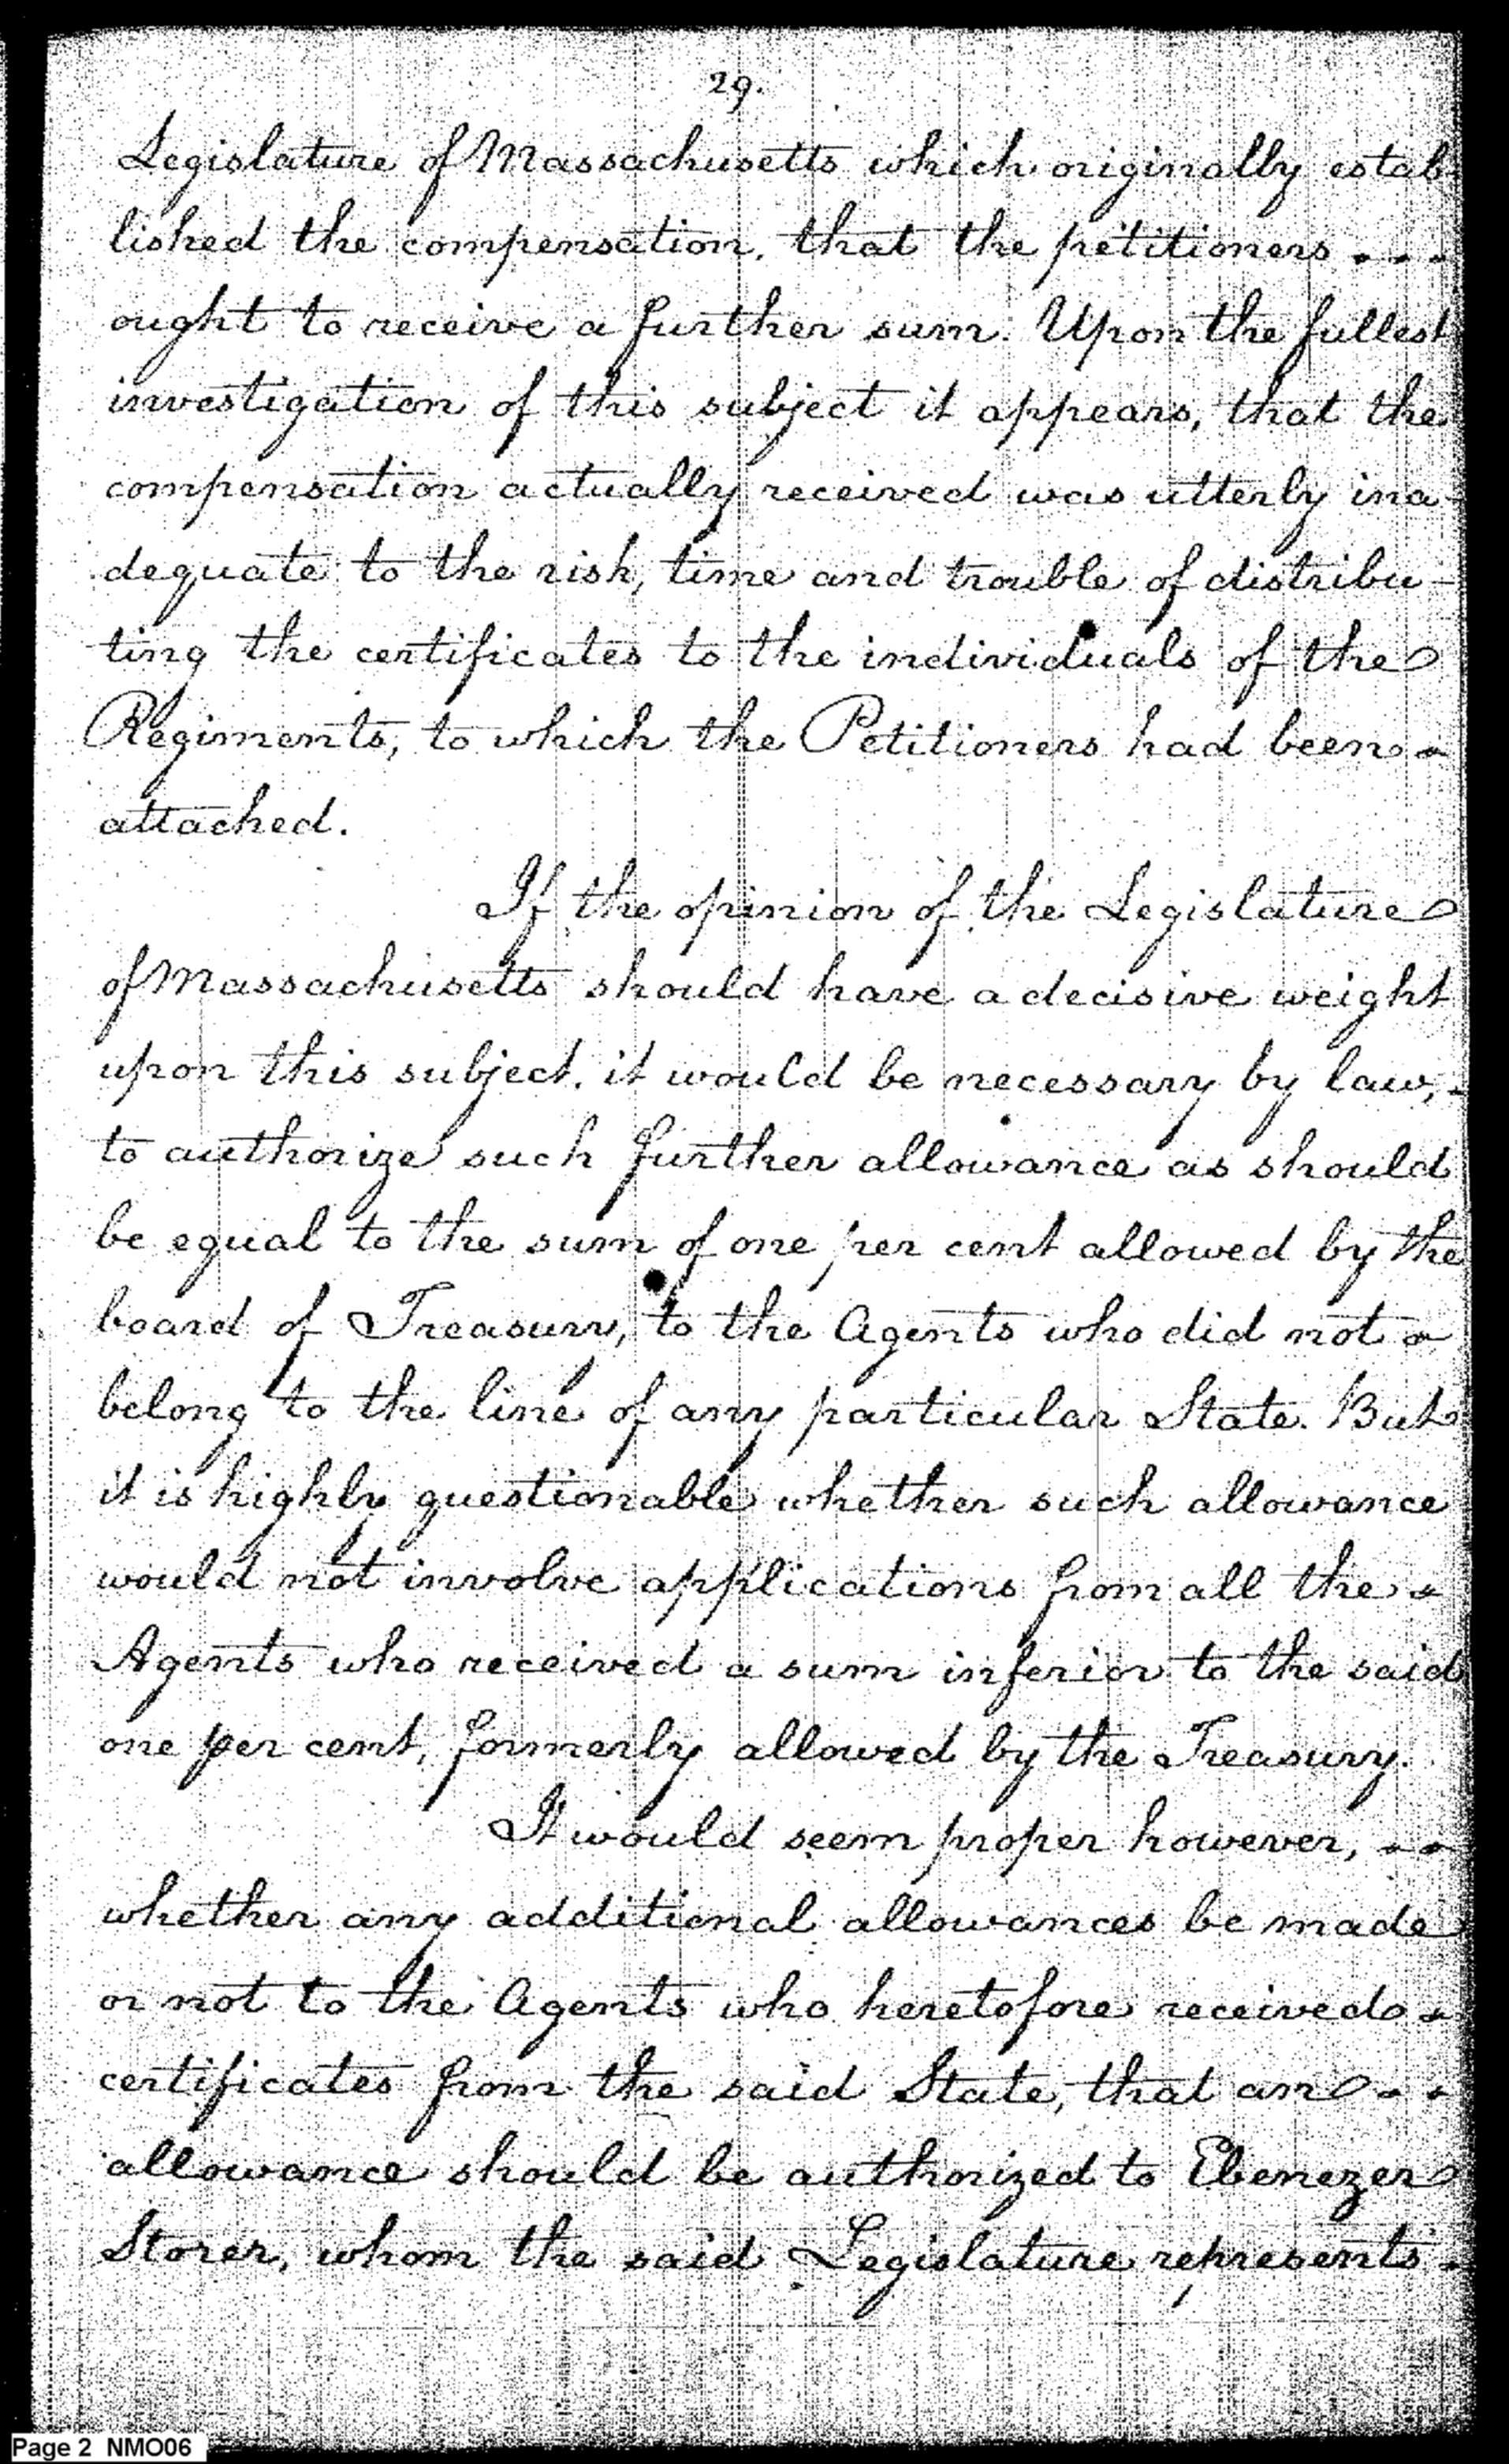 29.
Legislature of Massachusetts which originally estab-
lished the compensation, that the petitioners - - -
ought to receive a further sum. Upon the fullest
investigation of this subject it appears, that the
compensation actually received was utterly ina-
dequate to the risk, time and trouble of distribu-
ting the certificates to the individuals of the
Regiments, to which the Petitioners had been -
attached.
If the opinion of the Legislature
of Massachusetts should have a decisive weight
upon this subject, it would be necessary by law, -
to authorize such further allowance as should
be equal to the sum of one per cent allowed by the
board of Treasury, to the Agents who did not -
belong to the line of any particular State. But
it is highly questionable whether such allowance
would not involve applications from all the -
Agents who received a sum inferior to the said
one per cent, formerly allowed by the Treasury.
It would seem proper however, - -
whether any additional allowances be made
or not to the Agents who heretofore received -
certificates from the said State, that an - -
allowance should be authorized to Ebenezer
Storer, whom the said Legislature represents -
Page 2 NMO06